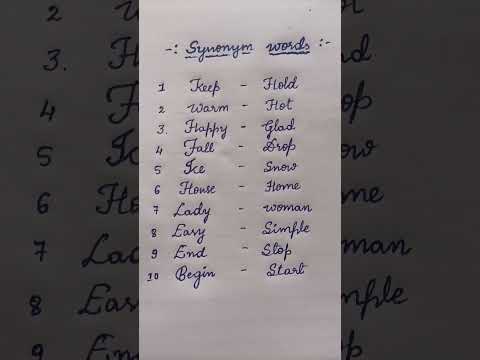 -: Synonym words :-
1 Keep - Hold
2 Warm - Hot
3. Happy - Glad
4 Fall - Drop
5 Ice - Snow
6 House - Home
7 Lady - woman
8 Easy - Simple
9 End - Stop
10 Begin - Start